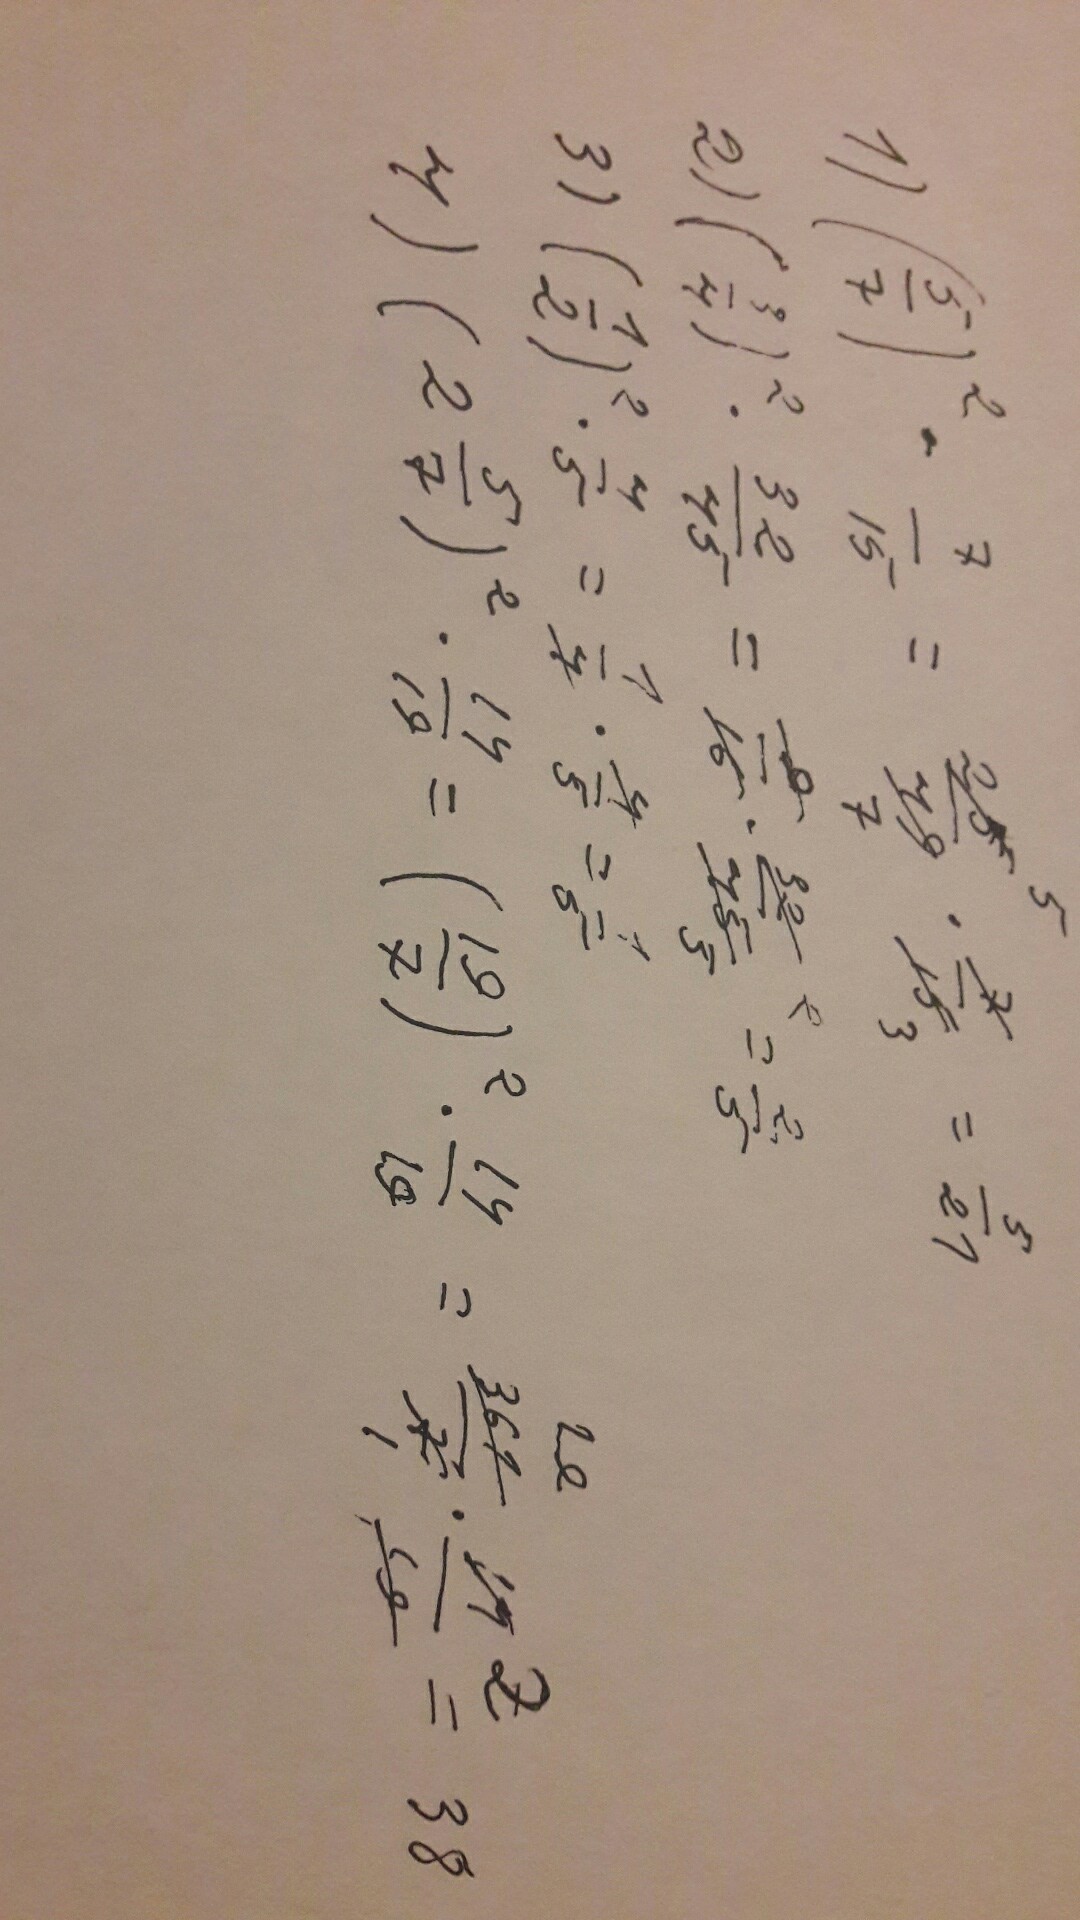 1) (5/7)² · 7/15 = 25/49 · 7/15 = 5/21
2) (3/4)² · 32/45 = 9/16 · 32/45 = 2/5
3) (1/2)² · 4/5 = 1/4 · 4/5 = 1/5
4) (2 5/7)² · 14/19 = (19/7)² · 14/19 = 361/7 · 14/19 = 38